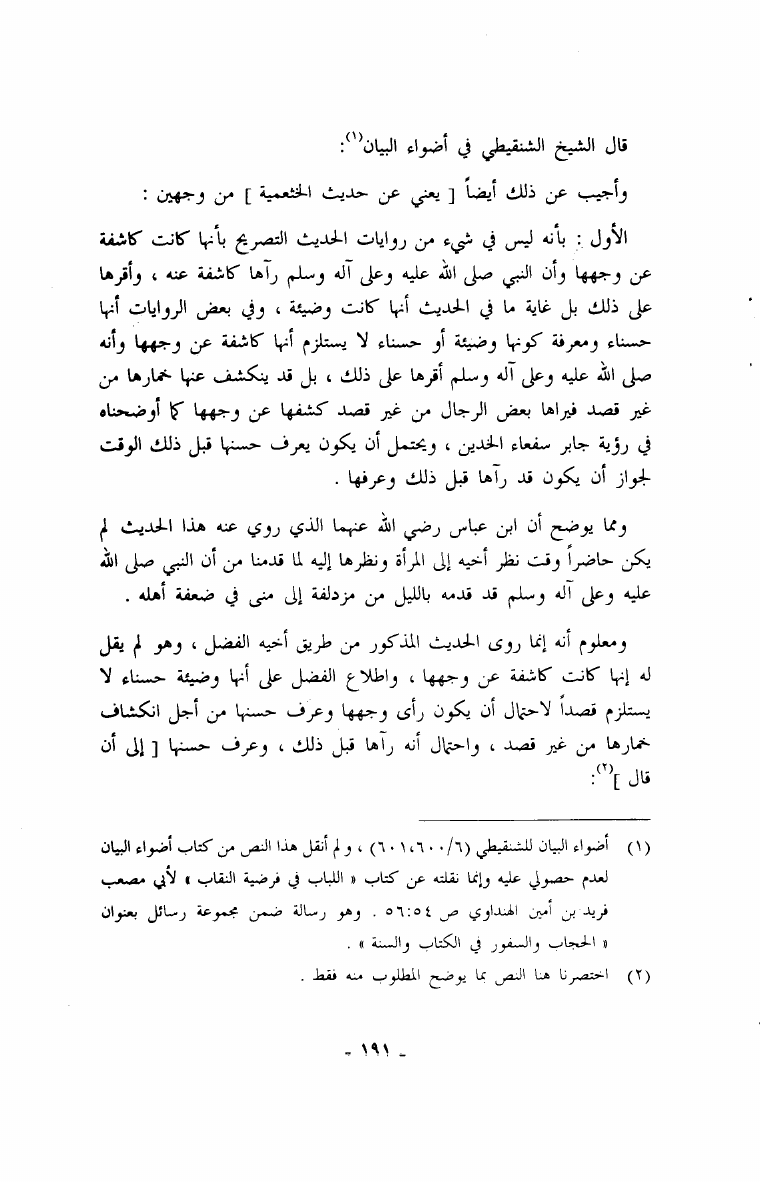 قال الشيخ الشنقيطي في أضواء البيان(١):
وأجيب عن ذلك أيضاً [ يعني عن حديث الخثعمية ] من وجهين :
الأول : بأنه ليس في شيء من روايات الحديث التصريح بأنها كانت كاشفة
عن وجهها وأن النبي صلى الله عليه وعلى آله وسلم رآها كاشفة عنه ، وأقرها
على ذلك بل غاية ما في الحديث أنها كانت وضيئة ، وفي بعض الروايات أنها
حسناء ومعرفة كونها وضيئة أو حسناء لا يستلزم أنها كاشفة عن وجهها وأنه
صلى الله عليه وعلى آله وسلم أقرها على ذلك ، بل قد ينكشف عنها خمارها من
غير قصد فيراها بعض الرجال من غير قصد كشفها عن وجهها كما أوضحناه
في رؤية جابر سفعاء الخدين ، ويحتمل أن يكون يعرف حسنها قبل ذلك الوقت
لجواز أن يكون قد رآها قبل ذلك وعرفها .
ومما يوضح أن ابن عباس رضي الله عنهما الذي روي عنه هذا الحديث لم
يكن حاضراً وقت نظر أخيه إلى المرأة ونظرها إليه لما قدمنا من أن النبي صلى الله
عليه وعلى آله وسلم قد قدمه بالليل من مزدلفة إلى منى في ضعفة أهله .
ومعلوم أنه إنما روى الحديث المذكور من طريق أخيه الفضل ، وهو لم يقل
له إنها كانت كاشفة عن وجهها ، واطلاع الفضل على أنها وضيئة حسناء لا
يستلزم قصداً لاحتمال أن يكون رأى وجهها وعرف حسنها من أجل انكشاف
خمارها من غير قصد ، واحتمال أنه رآها قبل ذلك ، وعرف حسنها [ إلى أن
قال ](٢):
(١) أضواء البيان للشنقيطي (٦٠١،٦٠٠/٦) ، ولم أنقل هذا النص من كتاب أضواء البيان
لعدم حصولي عليه وإنما نقلته عن كتاب « اللباب في فرضية النقاب » لأبي مصعب
فريد بن أمين الهنداوي ص ٥٦:٥٤ . وهو رسالة ضمن مجموعة رسائل بعنوان
« الحجاب والسفور في الكتاب والسنة » .
(٢) اختصرنا هنا النص بما يوضح المطلوب منه فقط .
- ١٩١ -